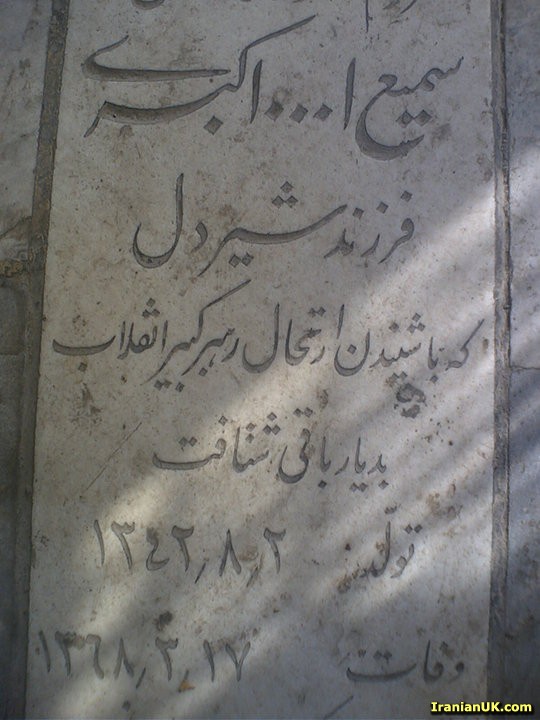 سمیع ا... اکبری
فرزند شیردل
که باشنیدن ارتحال رهبر کبیر انقلاب
بدیار باقی شتافت
تولّد ۱۳٤۲٫۸٫۲
وفات ۱۳٦۸٫۳٫۱۷
IranianUK.com